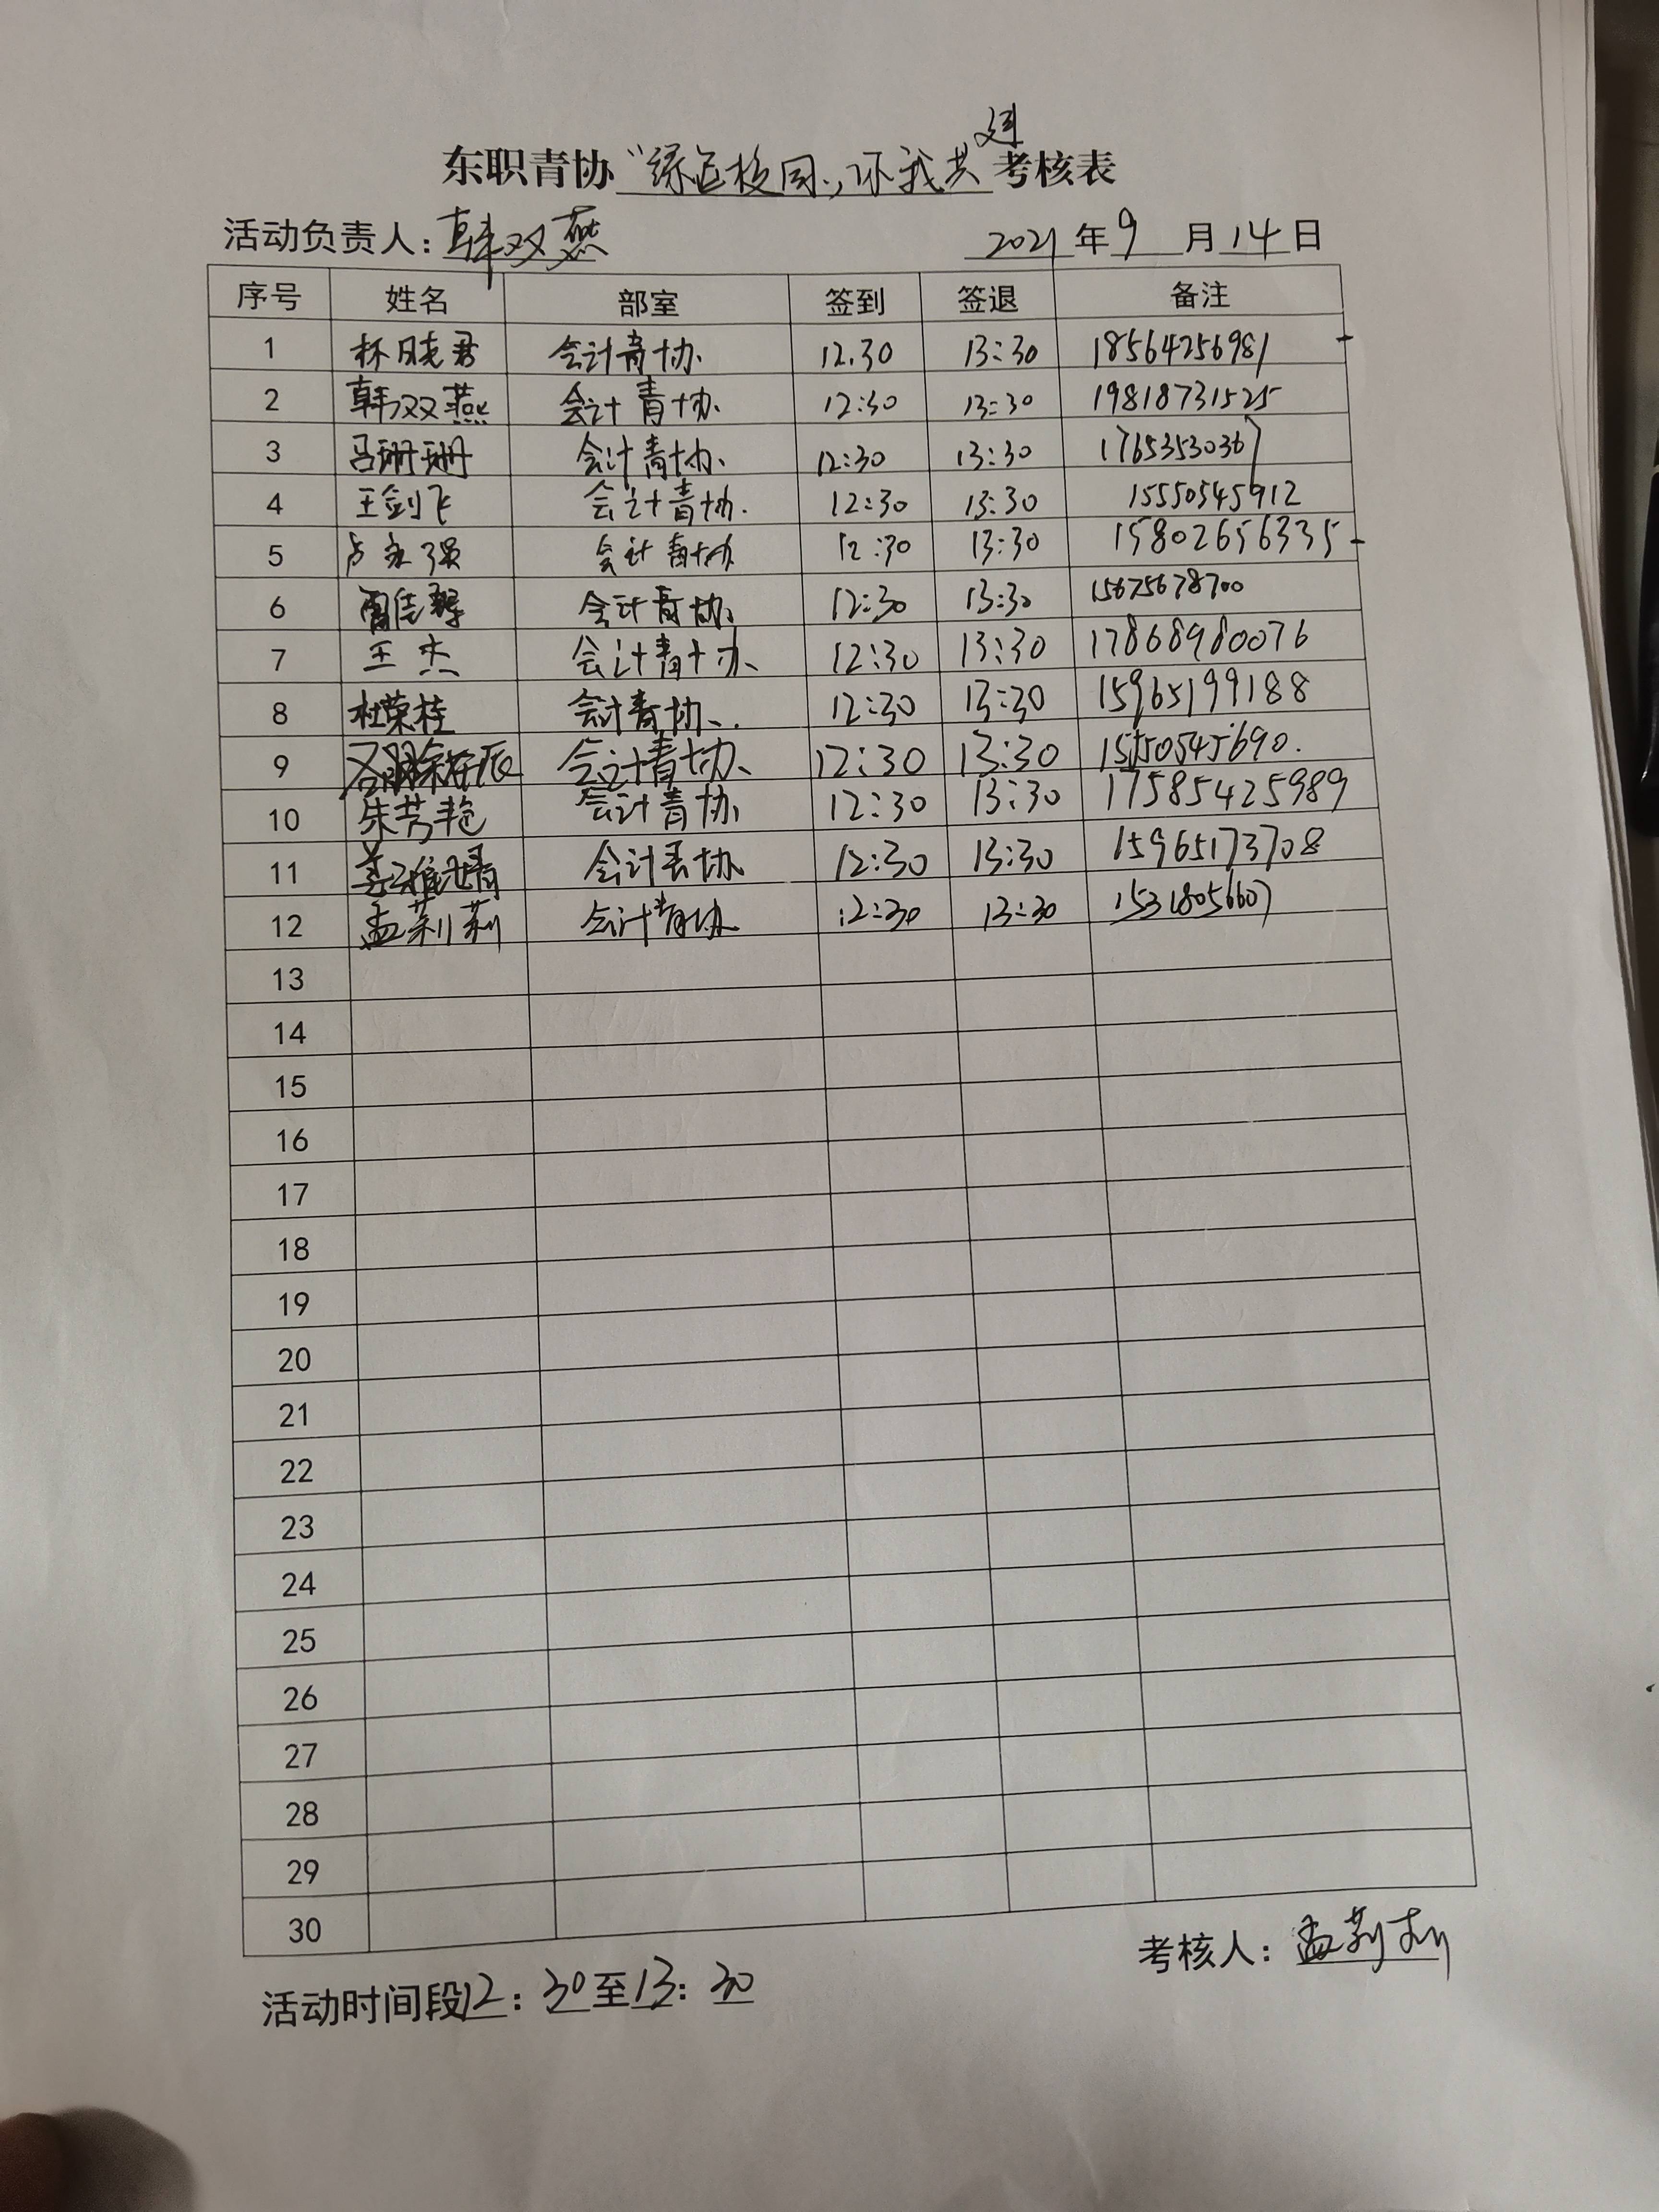 建
东职青协“绿色校园,,环我共考核表
活动负责人:韩双燕 2021年9月14日
序号 姓名 部室 签到 签退 备注
1 林晓君 会计青协 12.30 13:30 18564256981
2 韩双燕 会计青协 12:30 13:30 19818731525
3 吕珊珊 会计青协 12:30 13:30 17653530367
4 王剑飞 会计青协 12:30 13:30 15550545912
5 卢永强 会计青协 12:30 13:30 15802656335
6 会计青协 12:30 13:30 15675678700
7 王杰 会计青协 12:30 13:30 17868980076
8 杜荣桂 会计青协 12:30 13:30 15965199188
9 会计青协 12:30 13:30 15550545690
10 朱芳艳 会计青协 12:30 13:30 17585425989
11 会计青协 12:30 13:30 15965173708
12 孟莉莉 会计青协 12:30 13:30 15318056607
13
14
15
16
17
18
19
20
21
22
23
24
25
26
27
28
29
30
考核人:孟莉莉
活动时间段12:30至13:30